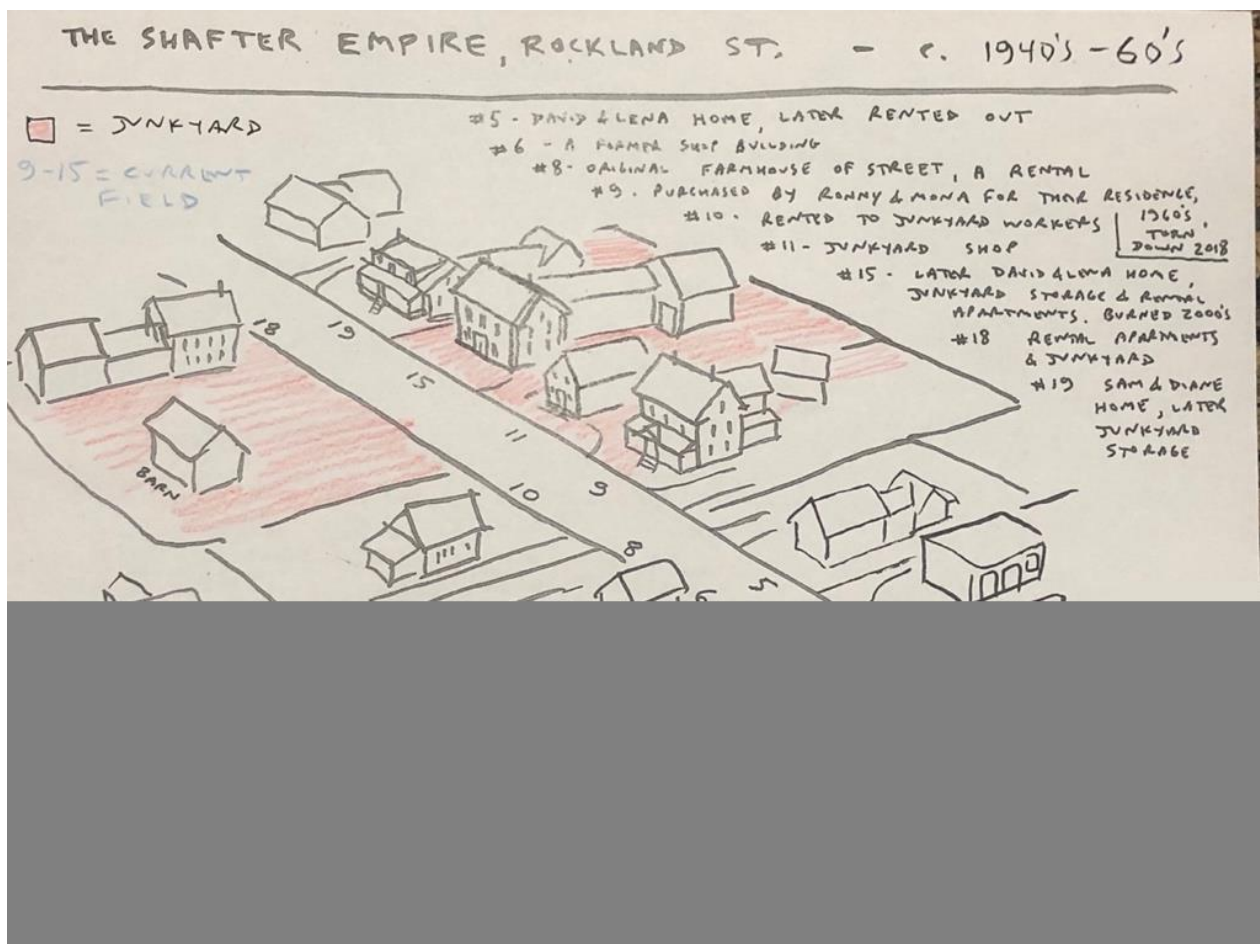 THE SHAFTER EMPIRE, ROCKLAND ST. - c. 1940's - 60's
= JUNKYARD
9-15 = CURRENT
FIELD
#5 - DAVID & LENA HOME, LATER RENTED OUT
#6 - A FORMER SHOP BUILDING
#8 - ORIGINAL FARMHOUSE OF STREET, A RENTAL
#9. PURCHASED BY RONNY & MONA FOR THAR RESIDENCE,
1960's,
TORN
DOWN 2018
#10. RENTED TO JUNKYARD WORKERS
#11 - JUNKYARD SHOP
#15 - LATER DAVID & LENA HOME,
JUNKYARD STORAGE & RENTAL
APARTMENTS. BURNED 2000's
#18 RENTAL APARMENTS
& JUNKYARD
#19 SAM & DIANE
HOME, LATER
JUNKYARD
STORAGE
18
19
15
11
10
9
8
6
5
BARN